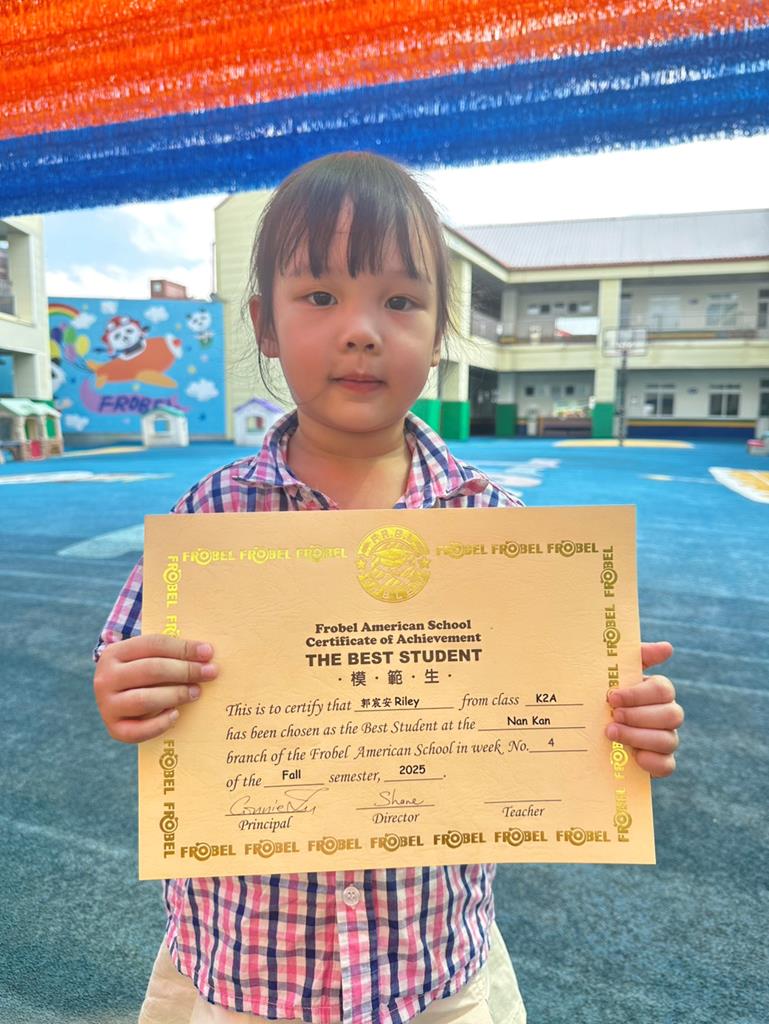 FROBEL
FROBEL FROBEL FROBEL FROBEL FROBEL FROBEL
Frobel American School
Certificate of Achievement
THE BEST STUDENT
·模·範·生·
This is to certify that 郭宸安 Riley from class K2A
has been chosen as the Best Student at the Nan Kan
branch of the Frobel American School in week No. 4
of the Fall semester, 2025.
Shane
Principal Director Teacher
FROBEL FROBEL FROBEL FROBEL FROBEL FROBEL FROBEL